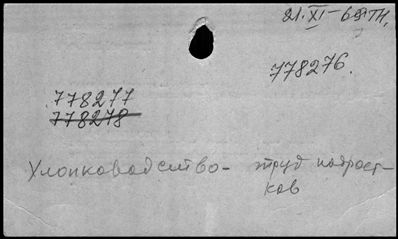 21.XI-69г ТН.
778276.
778277
778278
Хлопководство - труд подрост-
ков